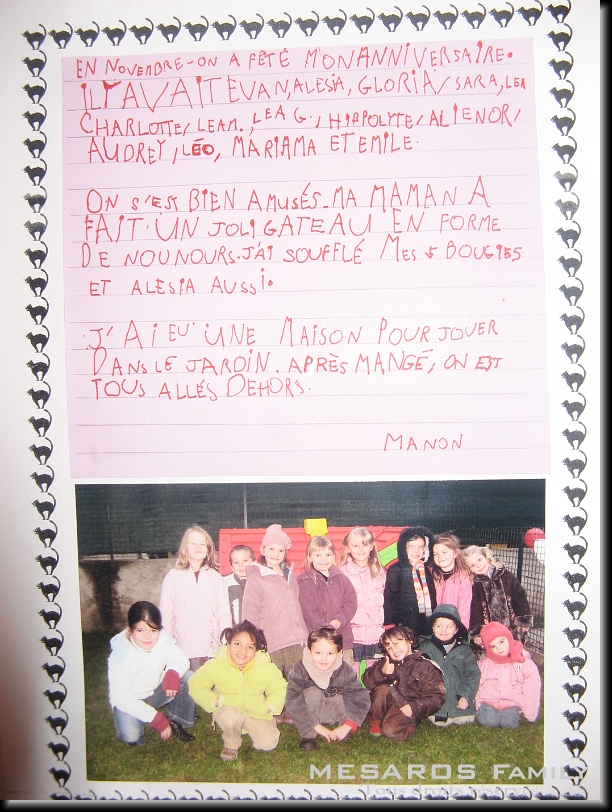 EN NOVEMBRE-ON A FÊTÉ MON ANNIVERSAIRE.
IL Y AVAIT EVAN, ALESIA, GLORIA, SARA, LEA
CHARLOTTE, LEA M., LEA G., HIPPOLYTE, ALIENOR,
AUDREY, LÉO, MARIAMA ET EMILE.
ON S'EST BIEN AMUSÉS-MA MAMAN A
FAIT UN JOLI GATEAU EN FORME
DE NOUNOURS. J'AI SOUFFLÉ MES 5 BOUGIES
ET ALESIA AUSSI.
J'AI EU UNE MAISON POUR JOUER
DANS LE JARDIN. APRÈS MANGÉ, ON EST
TOUS ALLÉS DEHORS.
MANON
MESAROS FAMILY
Tous droits réservés